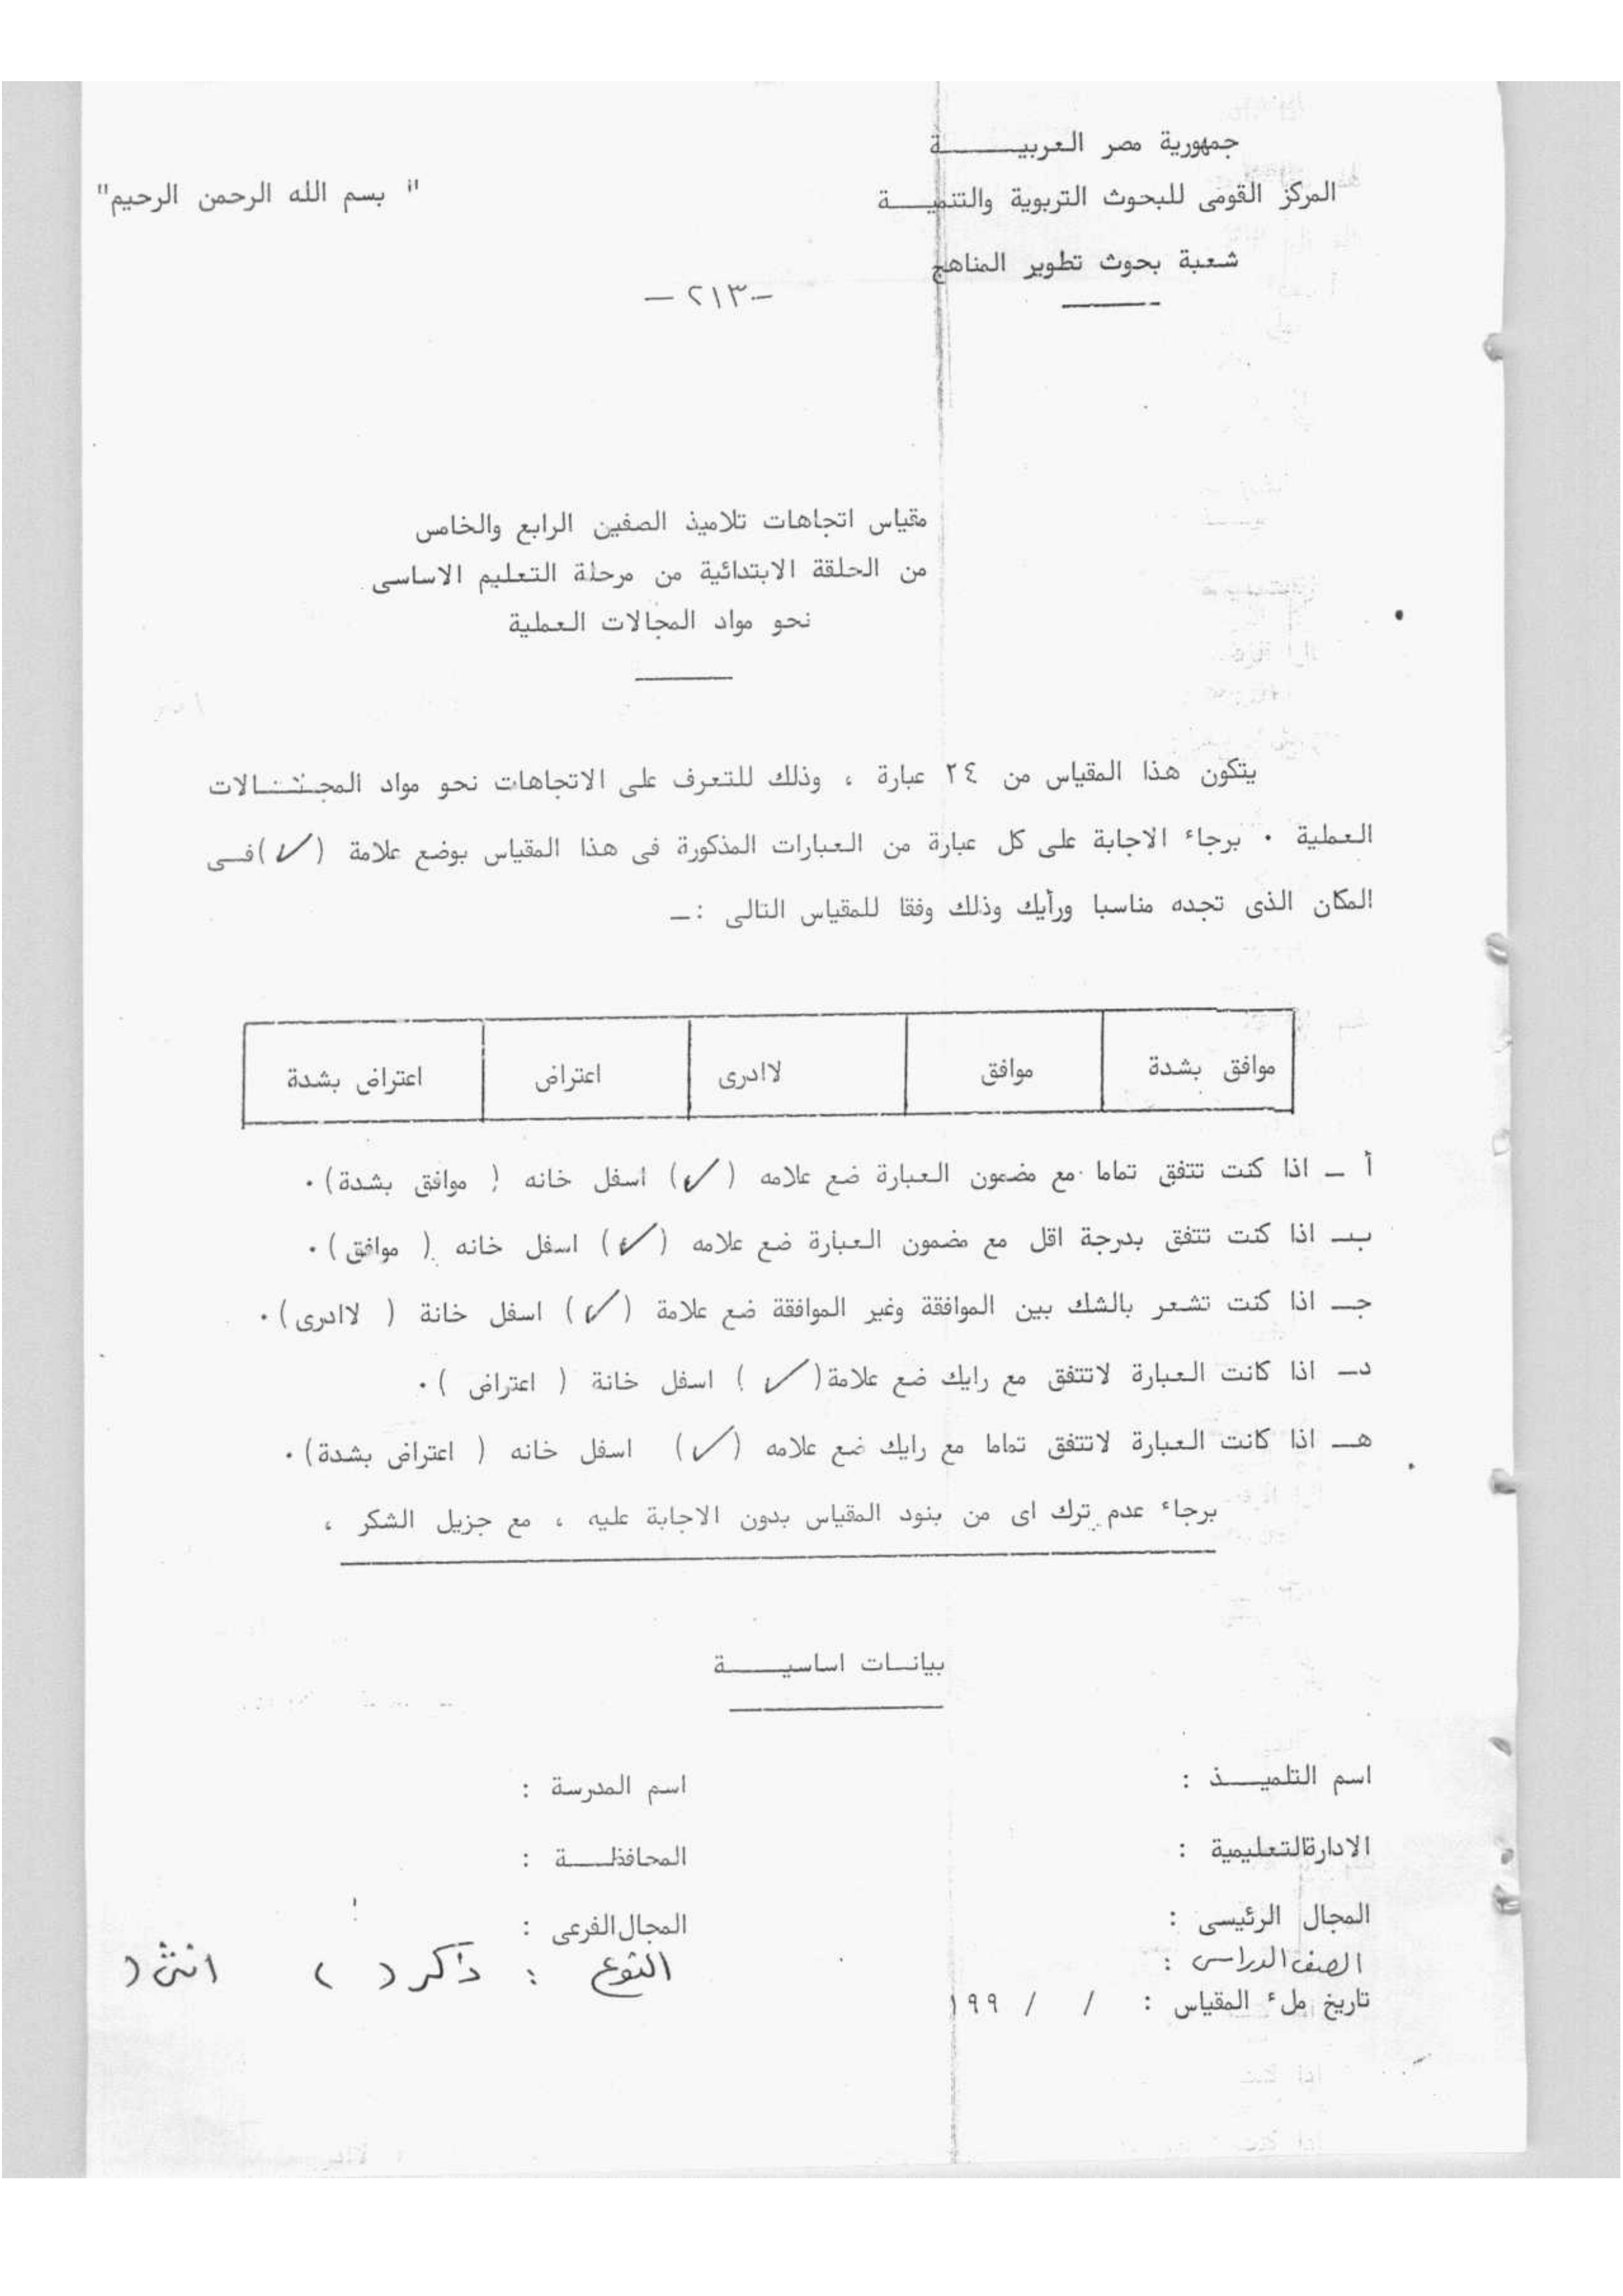 جمهورية مصر العربية
المركز القومى للبحوث التربوية والتنمية
" بسم الله الرحمن الرحيم"
شعبة بحوث تطوير المناهج
-٢١٣-
مقياس اتجاهات تلاميذ الصفين الرابع والخامس
من الحلقة الابتدائية من مرحلة التعليم الاساسى
نحو مواد المجالات العملية
يتكون هذا المقياس من ٢٤ عبارة ، وذلك للتعرف على الاتجاهات نحو مواد المجالات
العملية . برجاء الاجابة على كل عبارة من العبارات المذكورة فى هذا المقياس بوضع علامة (✓) فى
المكان الذى تجده مناسبا ورأيك وذلك وفقا للمقياس التالى :ـ
موافق بشدة موافق لاادرى اعتراض اعتراض بشدة
أ ـ اذا كنت تتفق تماما مع مضمون العبارة ضع علامه (✓) اسفل خانه ( موافق بشدة) .
ب ـ اذا كنت تتفق بدرجة اقل مع مضمون العبارة ضع علامه (✓) اسفل خانه ( موافق) .
جـ ـ اذا كنت تشعر بالشك بين الموافقة وغير الموافقة ضع علامة (✓) اسفل خانة ( لاادرى) .
د ـ اذا كانت العبارة لاتتفق مع رايك ضع علامة (✓) اسفل خانة ( اعتراض ) .
هـ ـ اذا كانت العبارة لاتتفق تماما مع رايك ضع علامه (✓) اسفل خانه ( اعتراض بشدة) .
برجاء عدم ترك اى من بنود المقياس بدون الاجابة عليه ، مع جزيل الشكر ،
بيانات اساسية
اسم التلميذ : اسم المدرسة :
الادارةالتعليمية : المحافظة :
المجال الرئيسى : المجال الفرعى :
الصف الدراسى : النوع : ذكر ( ) انثى (
تاريخ ملء المقياس : / / ١٩٩